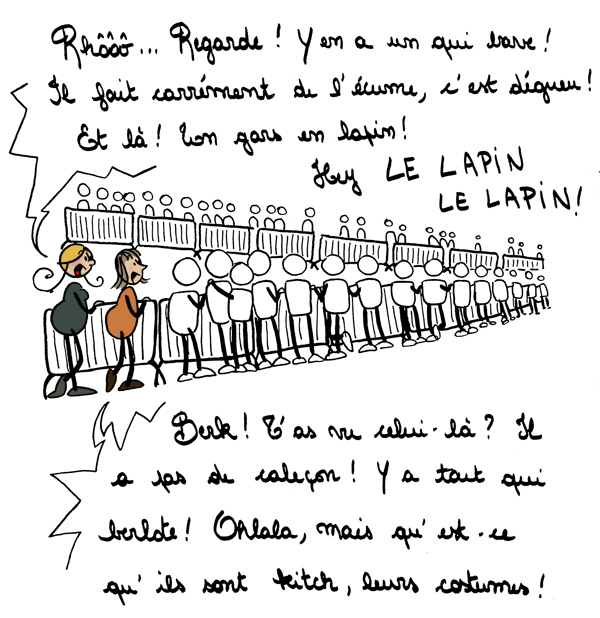 Rhôôô... Regarde ! Y en a un qui bave !
Il fait carrément de l'écume, c'est dégueu !
Et là ! Un gars en lapin !
Hey LE LAPIN
LE LAPIN !
Berk ! T'as vu celui-là ? Il
a pas de caleçon ! Y a tout qui
berlote ! Ohlala, mais qu'est-ce
qu'ils sont kitch, leurs costumes !